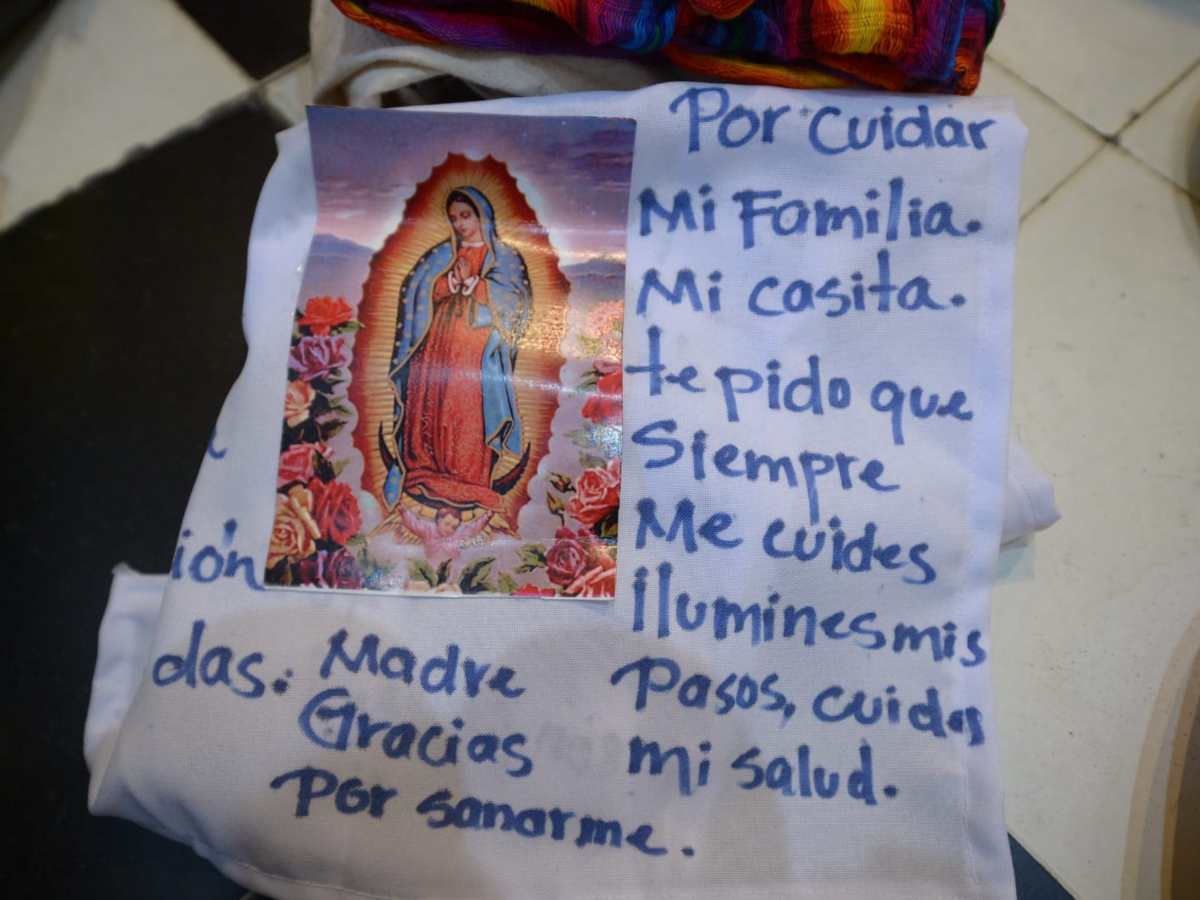 Por cuidar
Mi Familia.
Mi casita.
te pido que
Siempre
Me cuides
ilumines mis
Pasos, cuides
mi salud.
ión
das. Madre
Gracias
Por sanarme.